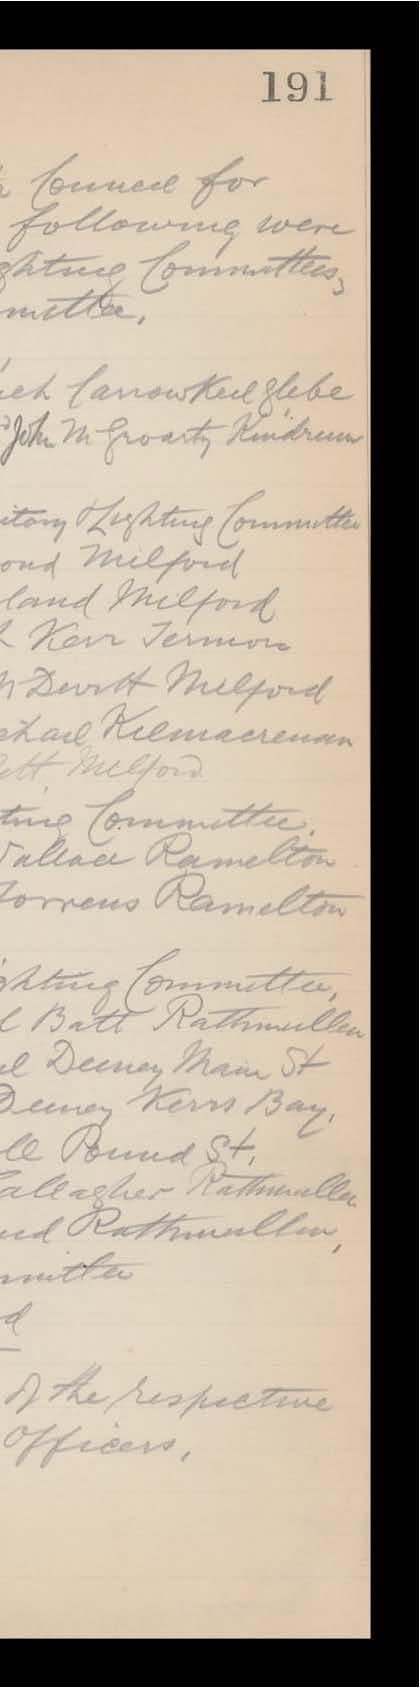 191
Council for
following were
ghting Committees,
mmittee,
Carrowkeel glebe
John McGroarty Kindrum
itary & Lighting Committee
ond Milford
land Milford
h Kerr Termon
McDevitt Milford
chael Kilmacrenan
ett Milford
ting Committee.
Wallace Ramelton
Torrens Ramelton
ghting Committee,
l Batt Rathmullen
el Deeney Main St
Deeney Kerrs Bay,
lle Pound St,
Gallagher Rathmullen
ud Rathmullen,
mmittee
d
of the respective
Officers,